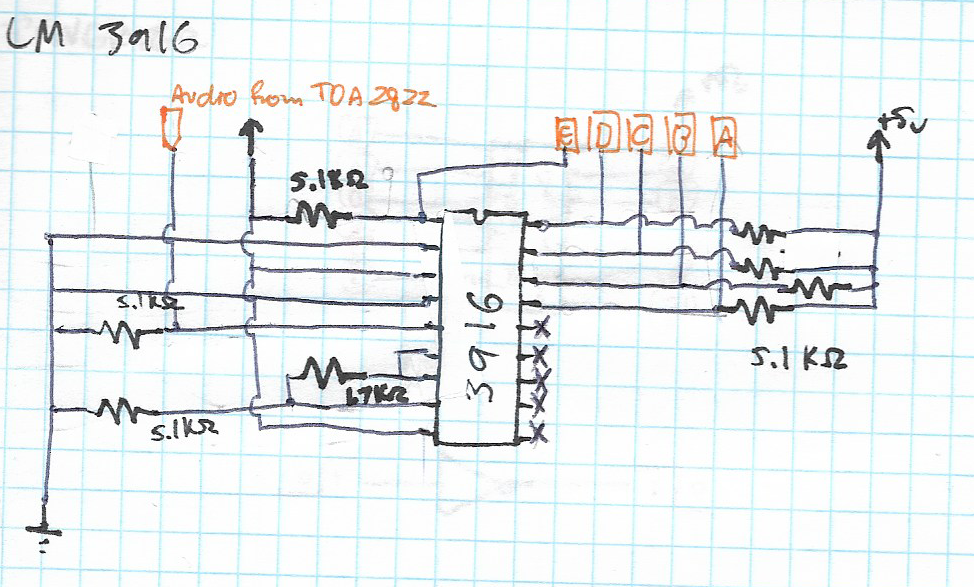 LM 3916
Audio from TDA2822
E D C B A
+5v
5.1KΩ
5.1KΩ
3916
1.7KΩ
5.1KΩ
5.1KΩ